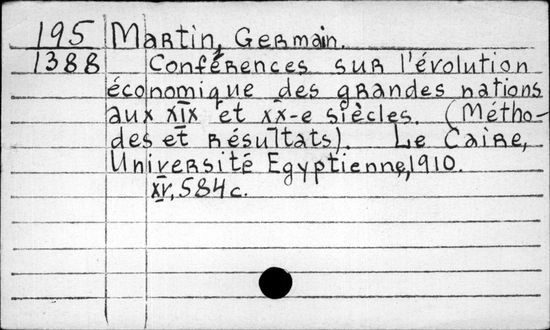 195 Martin, Germain.
1388 Conférences sur l'évolution
économique des grandes nations
aux XIX et XX-e siècles. (Métho-
des et résultats). Le Caire,
Université Egyptienne, 1910.
XV, 584 c.